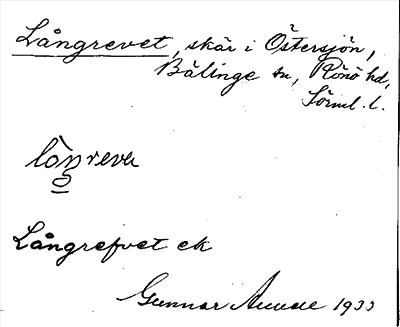 Långrevet, skär i Östersjön,
Bälinge sn, Rönö hd,
Sörml. l.
Långrefvet ek
Gunnar 1933